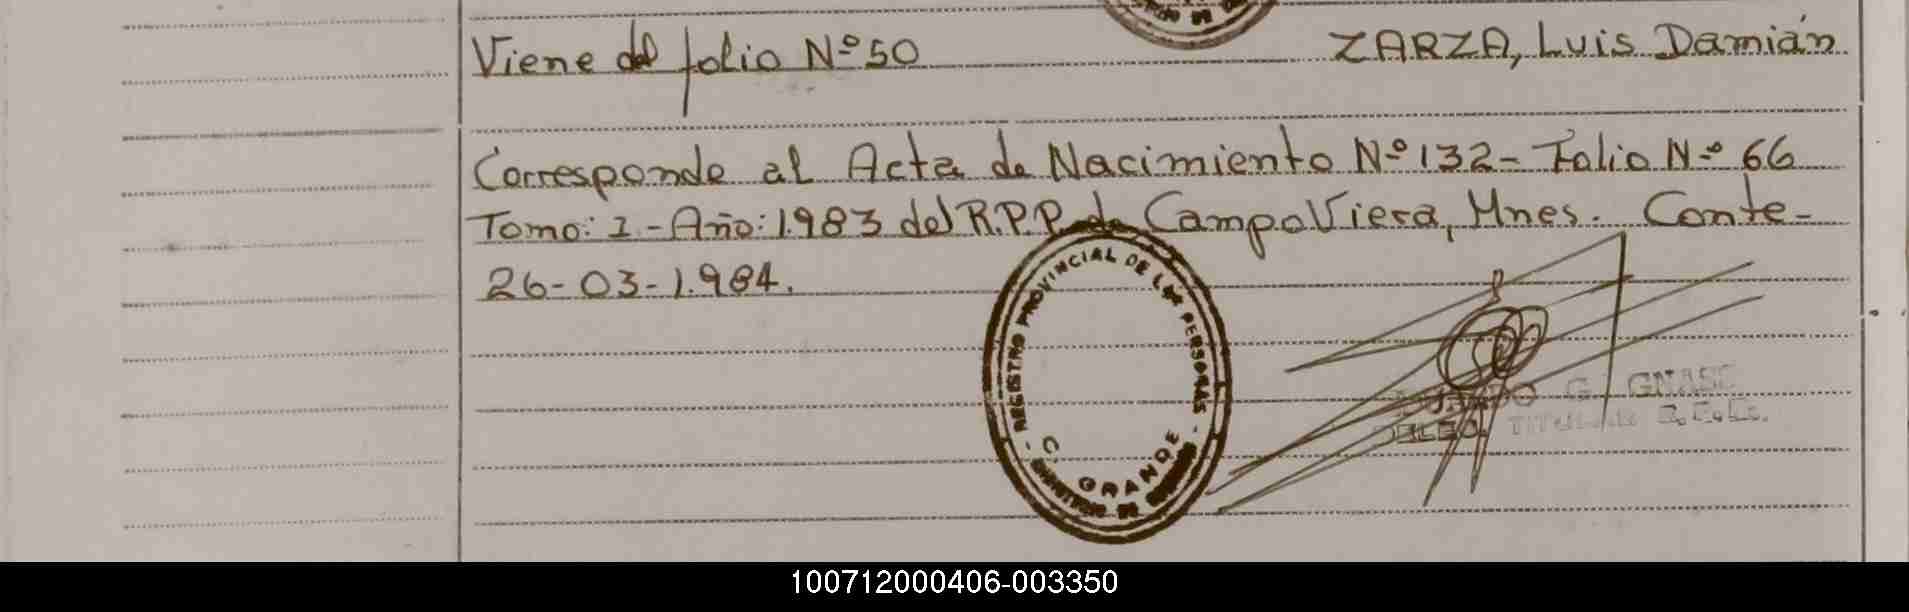 Viene del folio Nº 50 ZARZA, Luis Damián
Corresponde al Acta de Nacimiento Nº 132 - Folio Nº 66
Tomo: I - Año: 1.983 del R.P.P. de Campo Viera, Mnes. Conte -
26-03-1.984.
- REGISTRO PROVINCIAL DE LAS PERSONAS -
C. GRANDE
DELEG. TITULAR
100712000406-003350